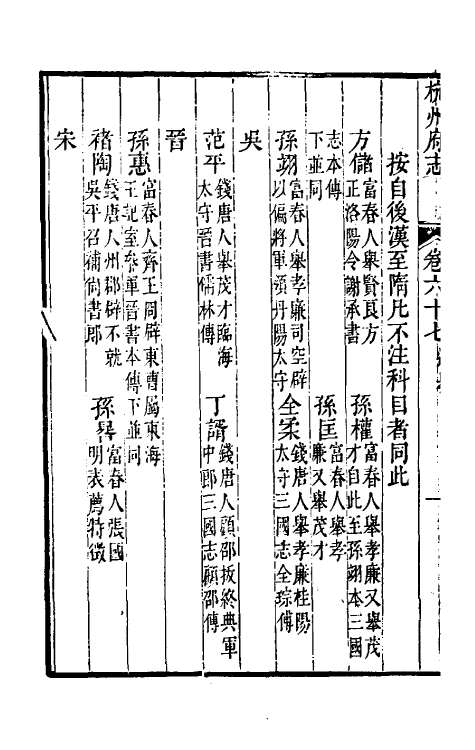 杭州府志 卷六十七
按自後漢至隋凡不注科目者同此
方儲 富春人舉賢良方正洛陽令謝承書 孫權 富春人舉孝廉又舉茂才自此至孫翊本三國
志本傳下並同 孫匡 富春人舉孝廉又舉茂才
孫翊 富春人舉孝廉司空辟以偏將軍領丹陽太守 全柔 錢唐人舉孝廉桂陽太守三國志全琮傳
吳
范平 錢唐人舉茂才臨海太守晉書儒林傳 丁諝 錢唐人顧邵拔終典軍中郎三國志顧邵傳
晉
孫惠 富春人齊王冏辟東曹屬東海王記室參軍晉書本傳下並同
褚陶 錢唐人州郡辟不就吳平召補尚書郎 孫晷 富春人張國明表薦特徵
宋